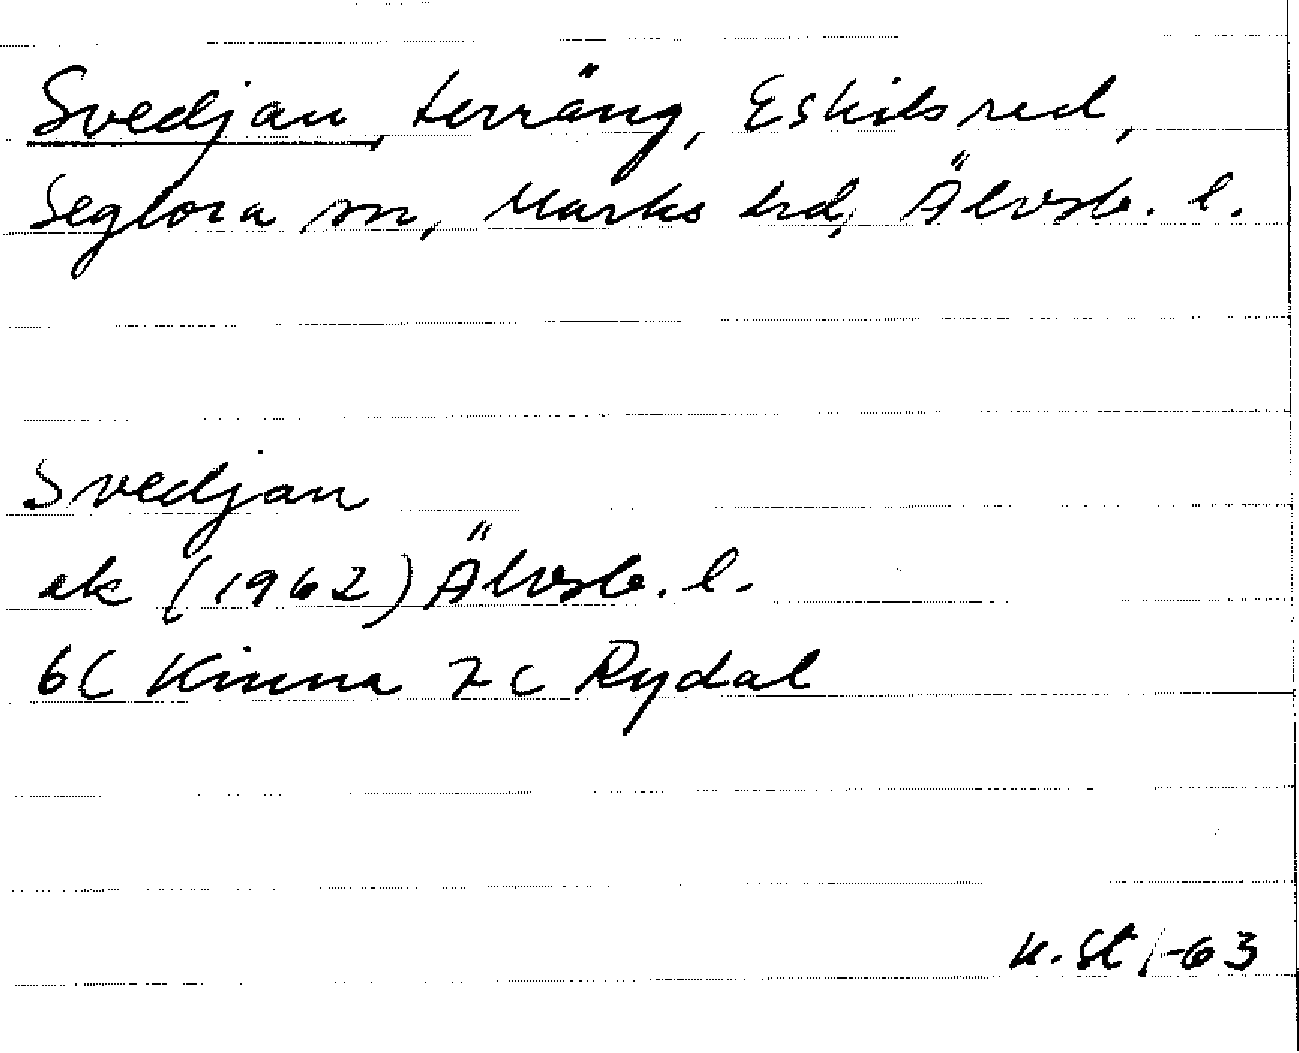 Svedjan, terräng, Eskilsred,
Seglora sn, Marks hd, Älvsb. l.
Svedjan
ek (1962) Älvsb. l.
6C Kinna 7c Rydal
K. St /-63